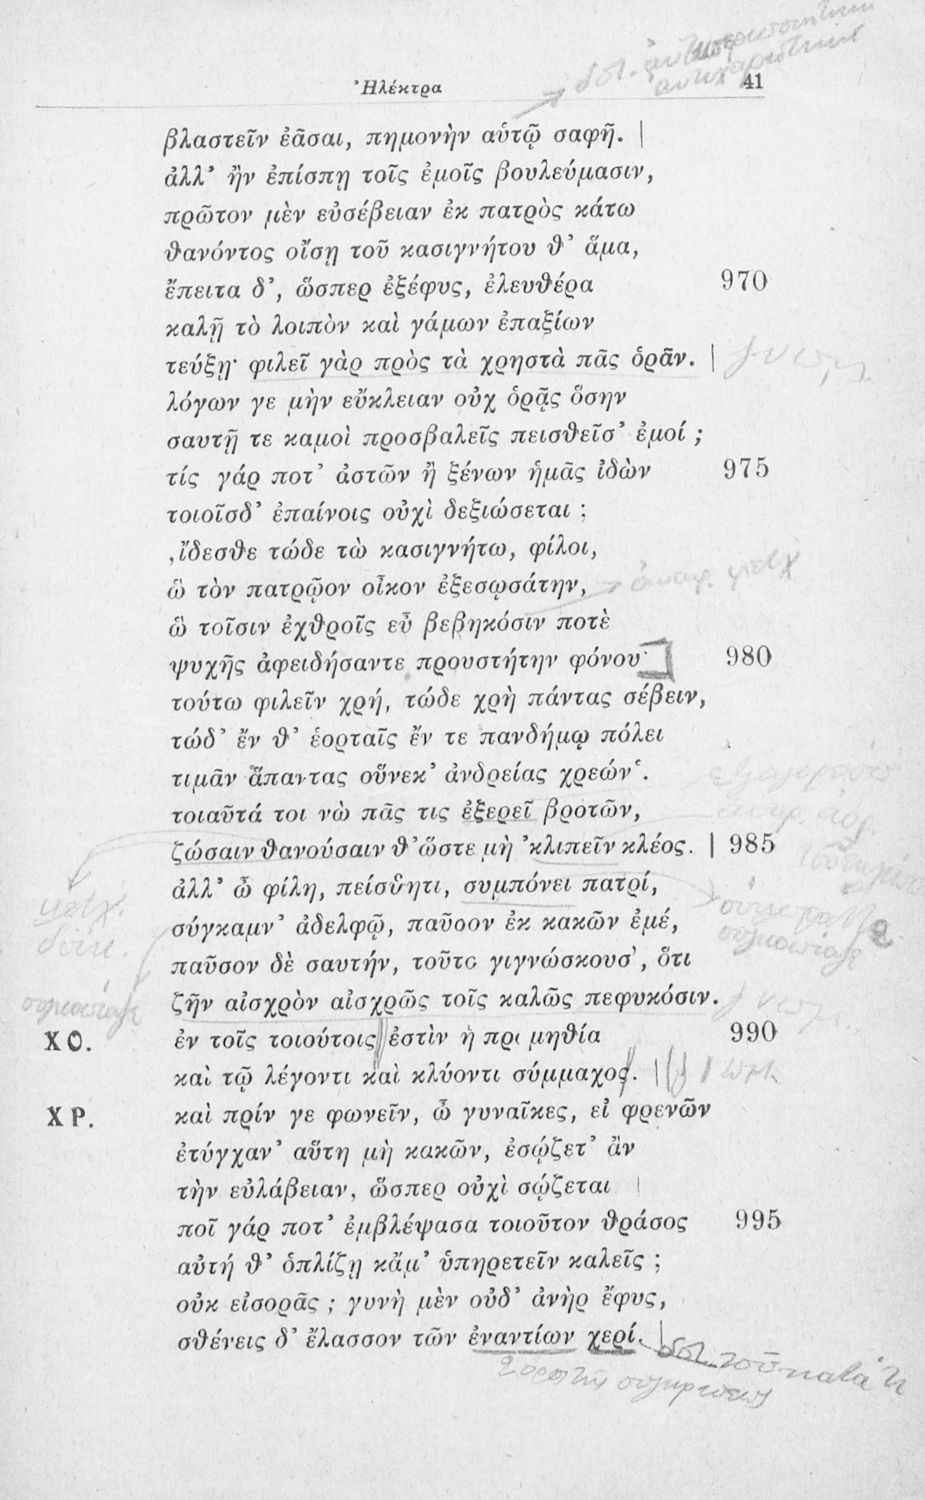 Ἠλέκτρα 41
βλαστεῖν ἐᾶσαι, πημονὴν αὑτῷ σαφῆ. |
ἀλλ' ἢν ἐπίσπῃ τοῖς ἐμοῖς βουλεύμασιν,
πρῶτον μὲν εὐσέβειαν ἐκ πατρὸς κάτω
θανόντος οἴσῃ τοῦ κασιγνήτου θ' ἅμα,
ἔπειτα δ', ὥσπερ ἐξέφυς, ἐλευθέρα 970
καλῇ τὸ λοιπὸν καὶ γάμων ἐπαξίων
τεύξῃ· φιλεῖ γὰρ πρὸς τὰ χρηστὰ πᾶς ὁρᾶν. | γνωμ.
λόγων γε μὴν εὔκλειαν οὐχ ὁρᾷς ὅσην
σαυτῇ τε καμοὶ προσβαλεῖς πεισθεῖσ' ἐμοί ;
τίς γάρ ποτ' ἀστῶν ἢ ξένων ἡμᾶς ἰδὼν 975
τοιοῖσδ' ἐπαίνοις οὐχὶ δεξιώσεται ;
,ἴδεσθε τώδε τὼ κασιγνήτω, φίλοι,
ὣ τὸν πατρῷον οἶκον ἐξεσῳσάτην,
ὣ τοῖσιν ἐχθροῖς εὖ βεβηκόσιν ποτὲ
ψυχῆς ἀφειδήσαντε προυστήτην φόνου· 980
τούτω φιλεῖν χρή, τώδε χρὴ πάντας σέβειν,
τώδ' ἔν θ' ἑορταῖς ἔν τε πανδήμῳ πόλει
τιμᾶν ἅπαντας οὕνεκ' ἀνδρείας χρεών‘.
τοιαῦτά τοι νὼ πᾶς τις ἐξερεῖ βροτῶν,
ζώσαιν θανούσαιν θ'ὥστε μὴ 'κλιπεῖν κλέος. | 985
ἀλλ' ὦ φίλη, πείσθητι, συμπόνει πατρί,
σύγκαμν' ἀδελφῷ, παῦσον ἐκ κακῶν ἐμέ,
παῦσον δὲ σαυτήν, τοῦτο γιγνώσκουσ', ὅτι
ζῆν αἰσχρὸν αἰσχρῶς τοῖς καλῶς πεφυκόσιν. γνωμ.
ΧΟ. ἐν τοῖς τοιούτοις ἐστὶν ἡ προμηθία 990
καὶ τῷ λέγοντι καὶ κλύοντι σύμμαχος.
ΧΡ. καὶ πρίν γε φωνεῖν, ὦ γυναῖκες, εἰ φρενῶν
ἐτύγχαν' αὕτη μὴ κακῶν, ἐσῴζετ' ἂν
τὴν εὐλάβειαν, ὥσπερ οὐχὶ σῴζεται |
ποῖ γάρ ποτ' ἐμβλέψασα τοιοῦτον θράσος 995
αὐτή θ' ὁπλίζῃ κἄμ' ὑπηρετεῖν καλεῖς ;
οὐκ εἰσορᾷς ; γυνὴ μὲν οὐδ' ἀνὴρ ἔφυς,
σθένεις δ' ἔλασσον τῶν ἐναντίων χερί.